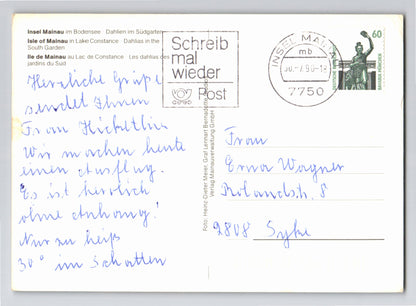 Insel Mainau im Bodensee · Dahlien im Südgarten
Isle of Mainau in Lake Constance · Dahlias in the
South Garden
Ile de Mainau au Lac de Constance · Les dahlias des
jardins du Sud
Herzliche Grüße
sendet Ihnen
Frau
Wir machen heute
einen Ausflug.
Es ist herrlich
ohne Anhang!
Nur zu heiß
30° im Schatten
Schreib
mal
wieder
Post
INSEL MAINAU
mb
7750
60
Foto: Heinz-Dieter Meier, Graf Lennart Bernadotte
Verlag Mainauverwaltung GmbH
Frau
Erna Wagner
Rolandstr. 8
2808 Syke